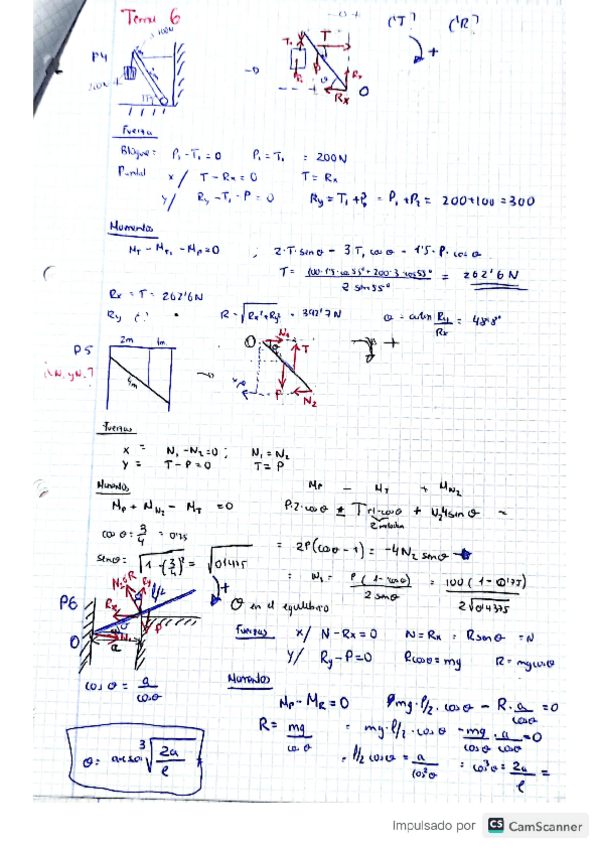 Tema 6
('T?) ('R?)
P4
100N
200N
T₁ T
P₁ P Rx O
Fuerzas
Bloque: P₁-T₁=0 P₁=T₁ = 200N
Puntal x/ T-Rx=0 T=Rx
y/ Ry-T₁-P=0 Ry=T₁+P₂ = P₁+P₂ = 200+100=300
Momentos
M_T - M_T₁ - M_P=0 ; 2·T·sinθ - 3T₁cosθ - 1'5·P·cosθ
T= (100·1'5·cos55°+200·3·cos55°)/(2 sin55°) = 262'6N
Rx = T = 262'6N
Ry R=√(Rx²+Ry²) = 392'7N Ry/Rx = 48'8°
P5
2m 1m
4m
¿N₁ y N₂?
O N₁ T
P N₂
Fuerzas
X = N₁-N₂=0; N₁=N₂
Y = T-P=0 T=P
Momentos
M_P + M_N₂ - M_T =0
M_P - M_T + M_N₂
cosθ = 3/4 = 0'75
sinθ = √(1-(3/4)²) = √0'4375
= 2P(cosθ-1) = -4N₂ sinθ
= N₂ = P(1-cosθ)/(2 sinθ) = 100(1-0'75)/(2√0'4375)
P6
θ en el equilibrio
Fuerzas X/ N-Rx=0 N=Rx = Rsenθ =N
Y/ Ry-P=0 Rcosθ=mg
cosθ = a/cosθ
Momentos
M_P - M_R=0 mg·l/2·cosθ - R·a/cosθ =0
R= mg/cosθ = mg·l/2·cosθ - mg/cosθ · a/cosθ =0
l/2 cosθ = a/cos²θ = cos³θ = 2a/l =
θ= ∛(2a/l)
Impulsado por CS CamScanner